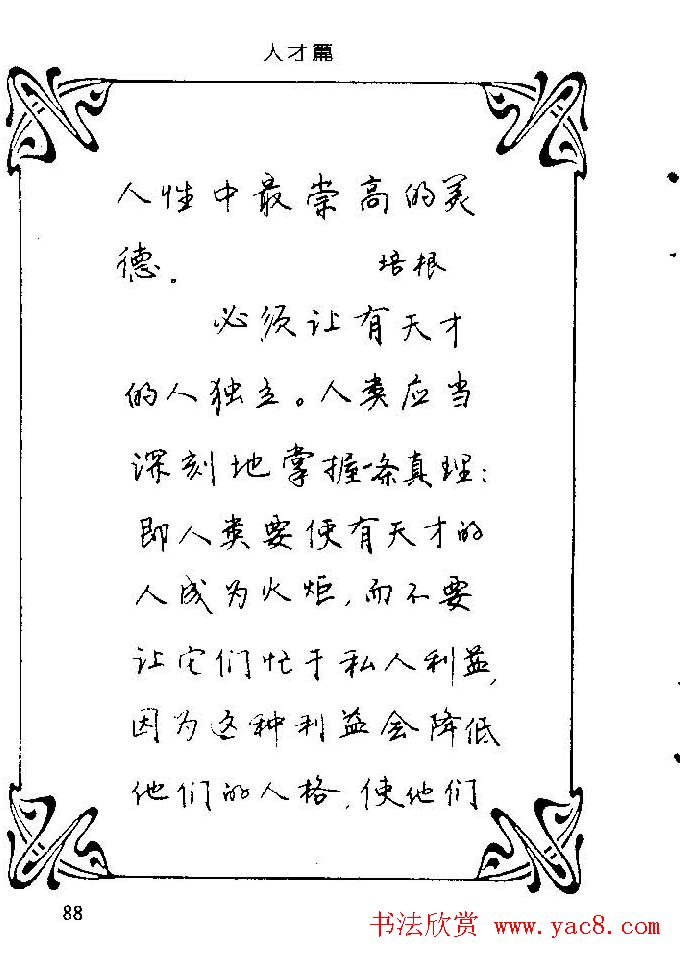 人才篇
人性中最崇高的美
德。 培根
必须让有天才
的人独立。人类应当
深刻地掌握一条真理:
即人类要使有天才的
人成为火炬,而不要
让它们忙于私人利益,
因为这种利益会降低
他们的人格,使他们
88
书法欣赏 www.yac8.com